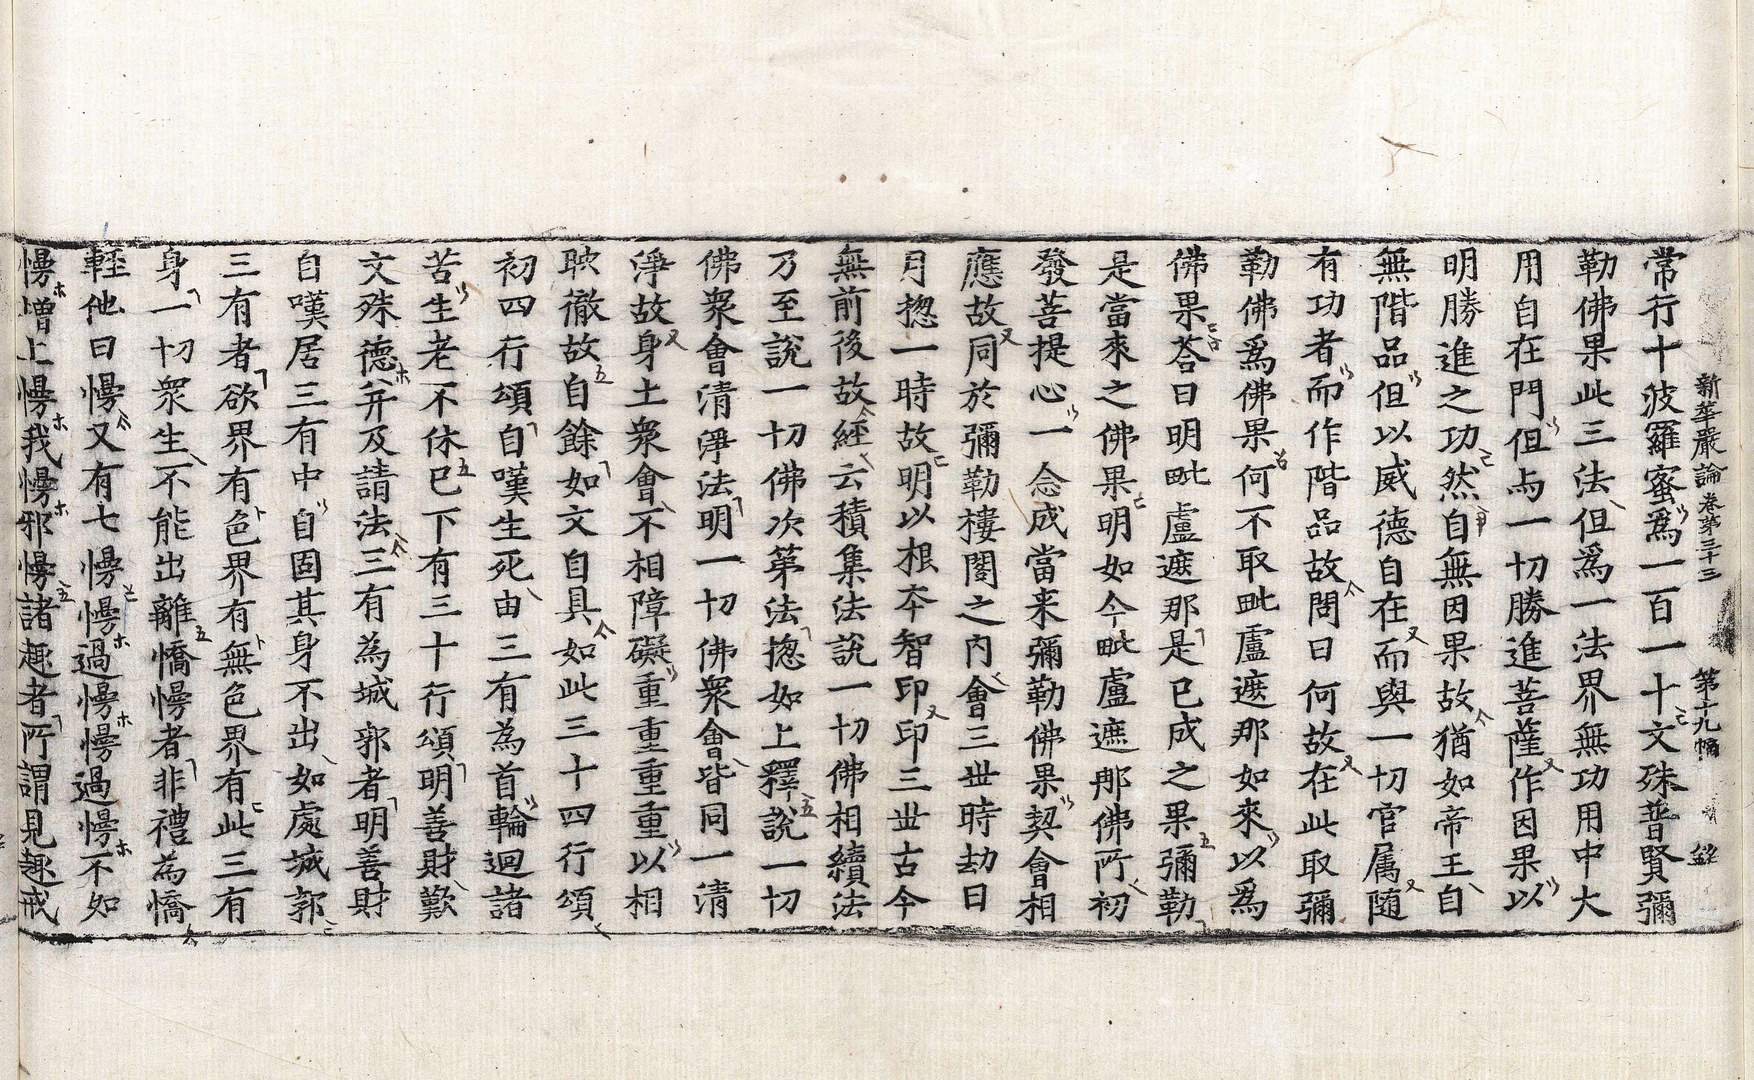 新華嚴論卷第三十三 第十九幅 終
常行十波羅蜜爲一百一十文殊普賢彌
勒佛果此三法但爲一法界無功用中大
用自在門但与一切勝進菩薩作因果以
明勝進之功然自無因果故猶如帝王自
無階品但以威德自在而與一切官属随
有功者而作階品故問曰何故在此取彌
勒佛爲佛果何不取毗盧遮那如來以爲
佛果荅曰明毗盧遮那是已成之果彌勒
是當來之佛果明如今毗盧遮那佛所初
發菩提心一念成當来彌勒佛果契會相
應故同於彌勒樓閣之內會三世時劫日
月揔一時故明以根本智印印三世古今
無前後故經云積集法說一切佛相續法
乃至說一切佛次第法揔如上釋說一切
佛衆會清淨法明一切佛衆會皆同一清
淨故身土衆會不相障礙重重重重以相
映徹故自餘如文自具如此三十四行頌
初四行頌自嘆生死由三有為首輪迴諸
苦生老不休已下有三十行頌明善財歎
文殊德并及請法三有為城郭者明善財
自嘆居三有中自固其身不出如處城郭
三有者欲界有色界有無色界有此三有
身一切衆生不能出離憍慢者非禮為憍
輕他曰慢又有七慢慢過慢慢過慢不如
慢增上慢我慢邪慢諸趣者所謂見趣戒